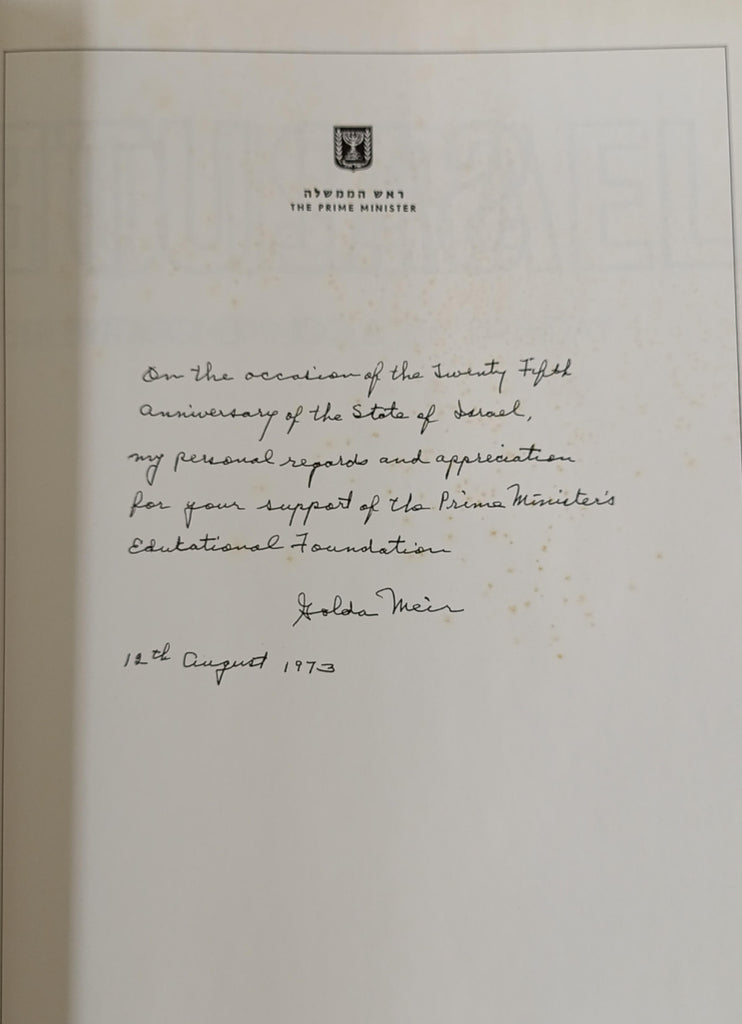 ראש הממשלה
THE PRIME MINISTER
On the occasion of the Twenty Fifth
Anniversary of the State of Israel,
my personal regards and appreciation
for your support of the Prime Minister's
Educational Foundation
Golda Meir
12th August 1973